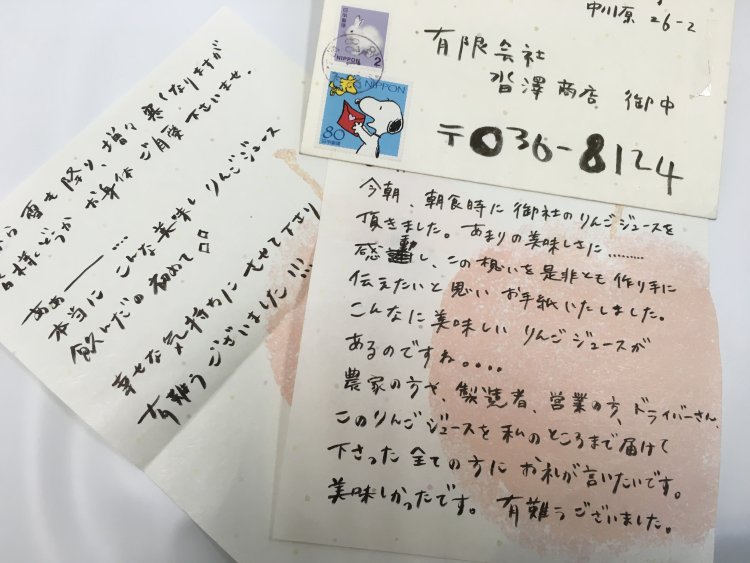 中川原 26-2
有限会社
沓澤商店 御中
〒036-8124
日本郵便
NIPPON
2
NIPPON
80
日本郵便
今朝、朝食時に 御社のりんごジュースを
頂きました。あまりの美味しさに………
感動し、この想いを是非とも作り手に
伝えたいと思い お手紙いたしました。
こんなに美味しい りんごジュースが
あるのですね。。。。
農家の方や、製造者、営業の方、ドライバーさん、
このりんごジュースを 私のところまで届けて
下さった 全ての方に お礼が言いたいです。
美味しかったです。 有難うございました。
雪も降り、増々寒くなりますが
皆様どうか お身体ご自愛下さいませ。
ああ――…
本当に こんな美味しいりんごジュース
飲んだの初めて!!
幸せな気持ちにさせて下さり
有難うございました!!!